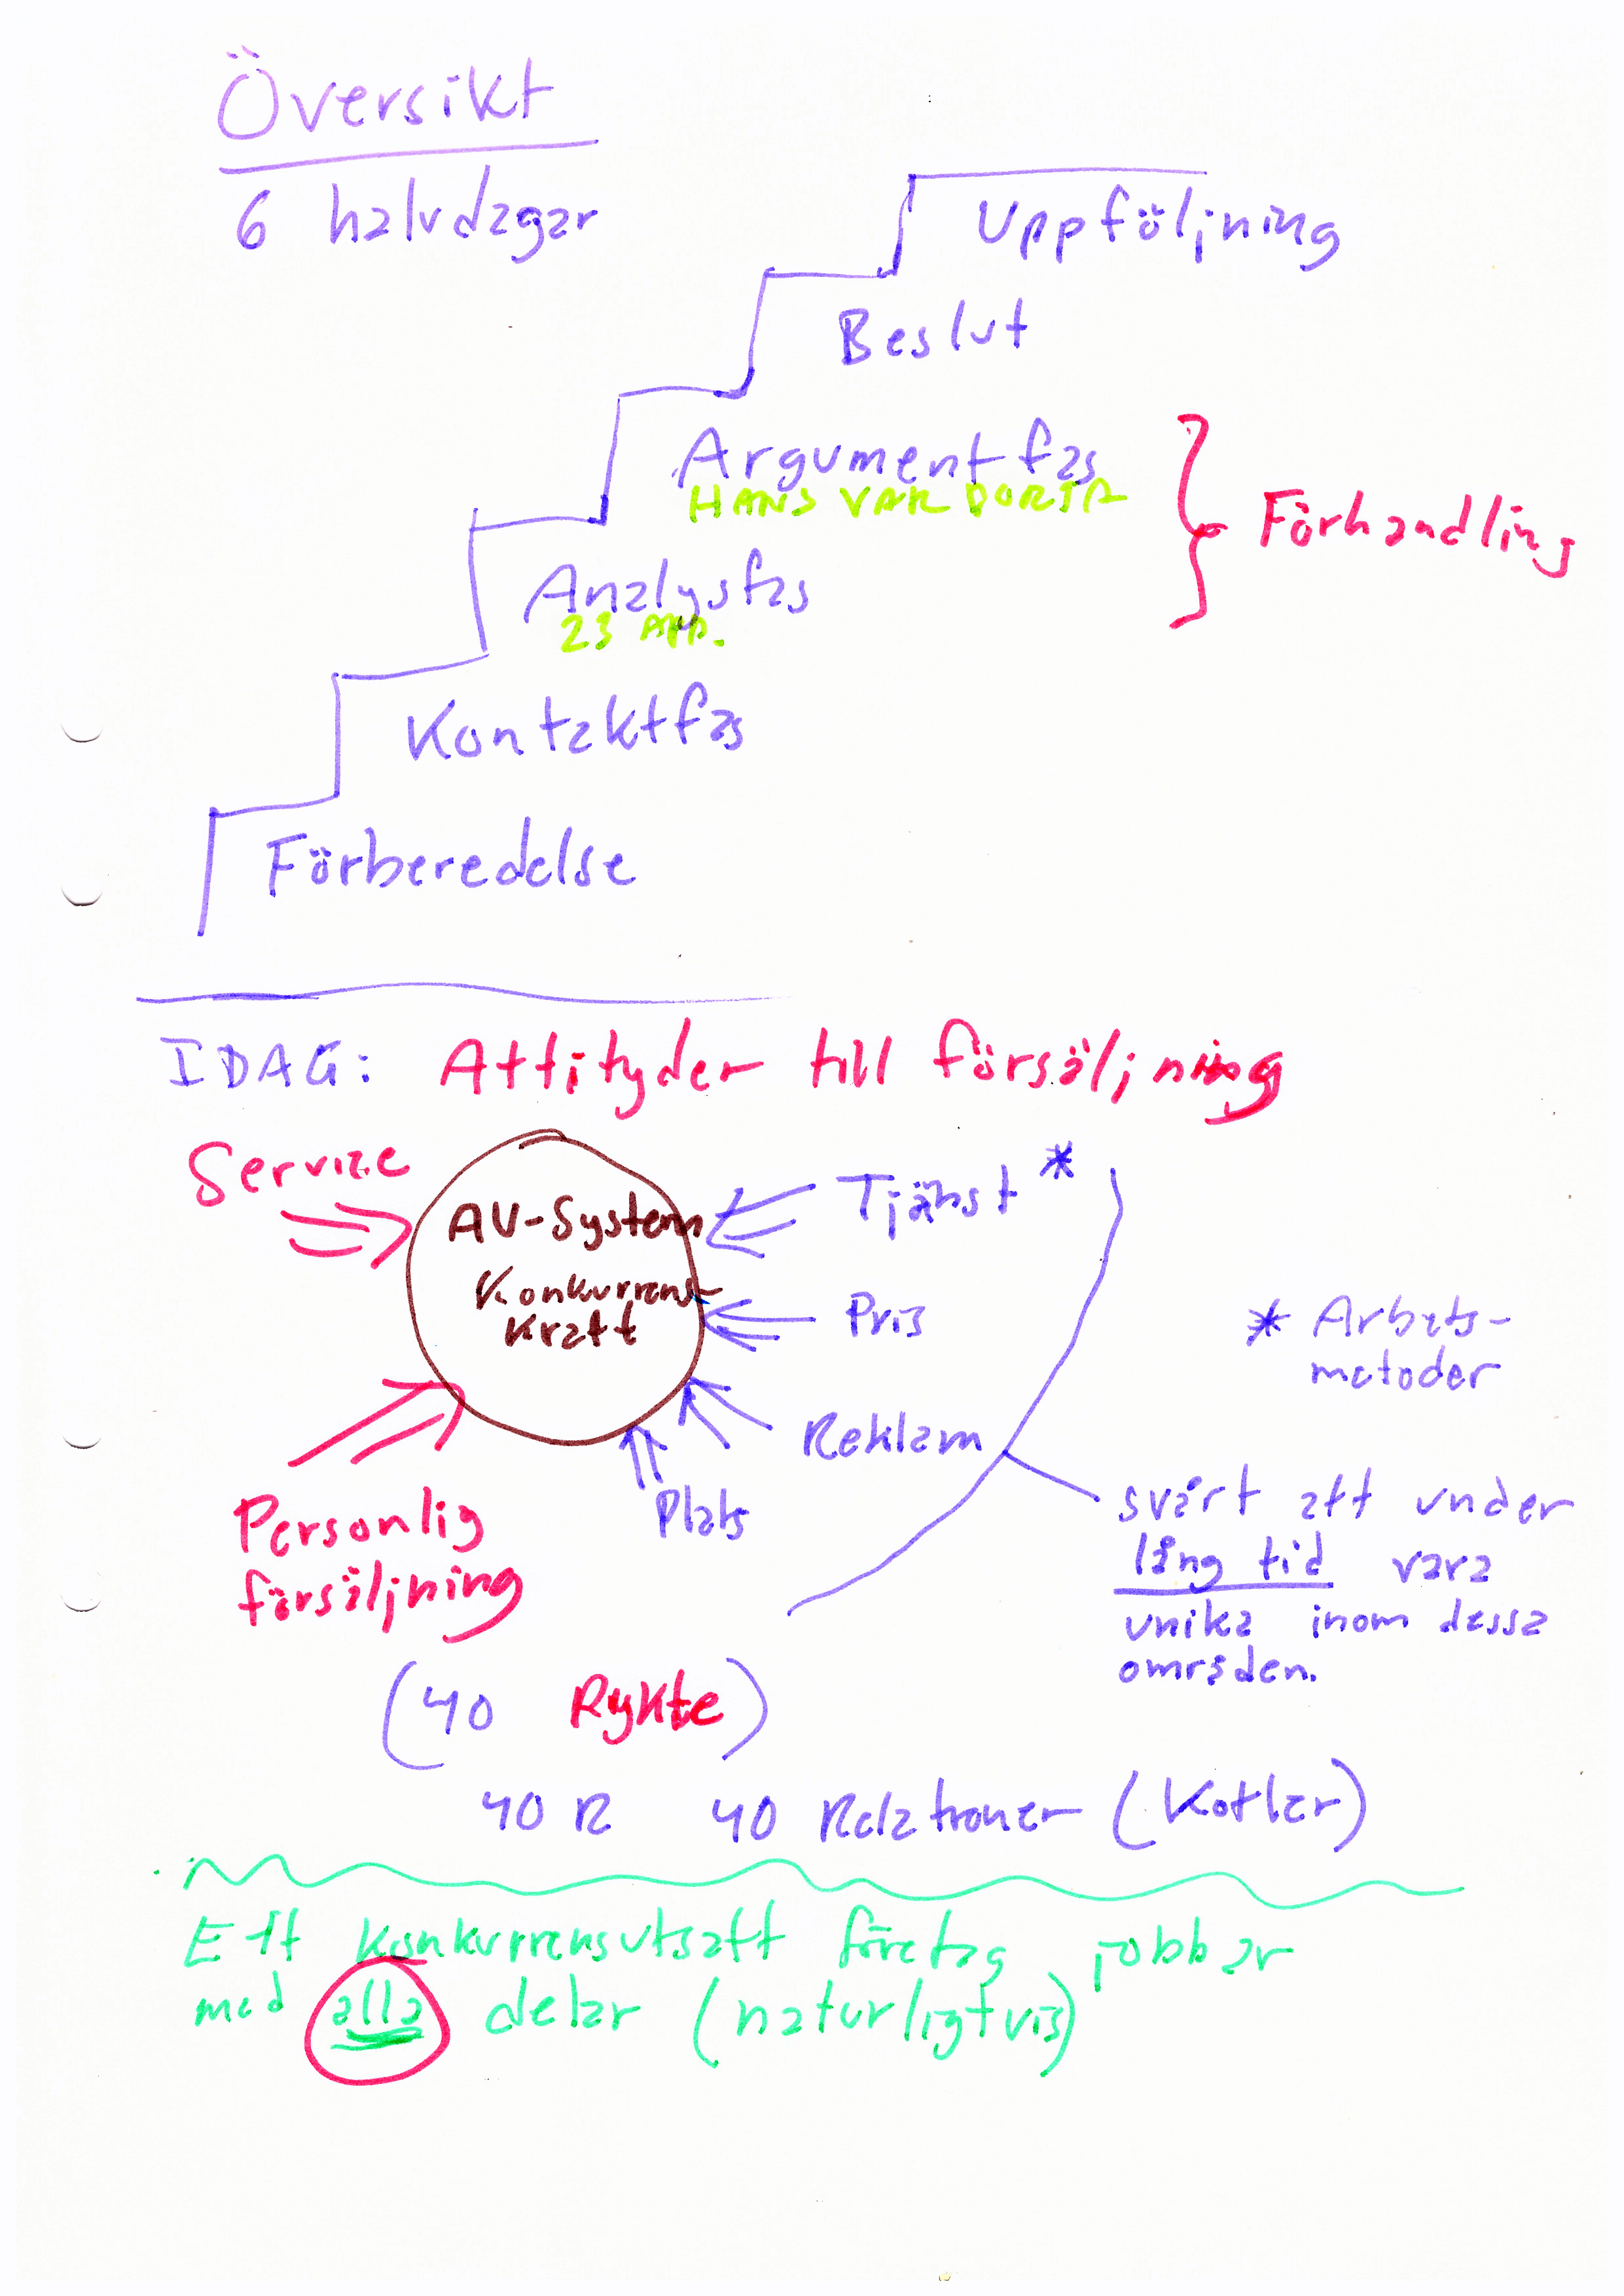 Översikt
6 halvdagar
Uppföljning
Beslut
Argumentfas
HANS VAR BORTA
Förhandling
Analysfas
23 APR.
Kontaktfas
Förberedelse
IDAG: Attityder till försäljning
Service
AV-System
Konkurrens-
kraft
Tjänst *
Pris
* Arbets-
metoder
Reklam
Plats
Personlig
försäljning
svårt att under
lång tid vara
unika inom dessa
områden.
(40 Rykte)
40 R 40 Relationer (Kotler)
Ett konkurrensutsatt företag jobbar
med alla delar (naturligtvis)